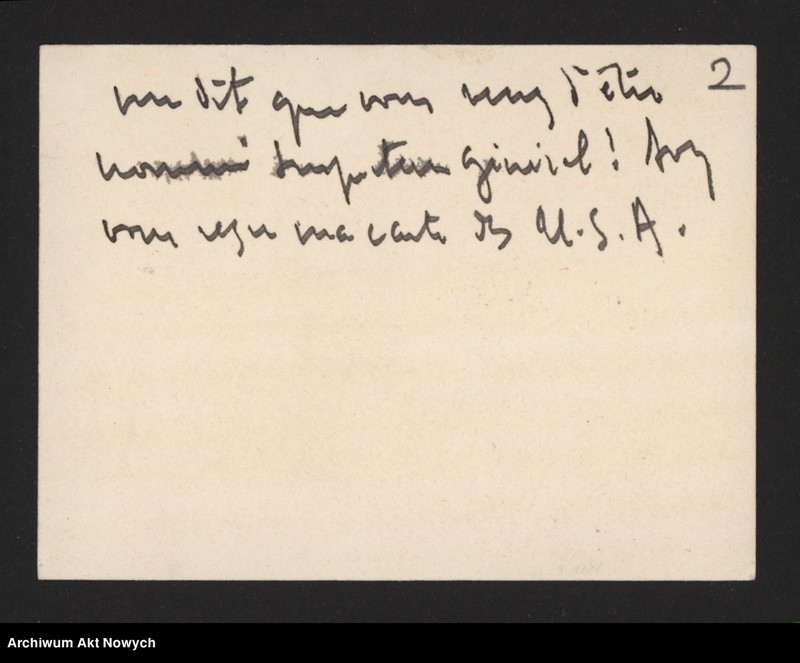 2
me dit que vous venez d'être
nommé Inspecteur général! Avez
vous reçu ma carte des U.S.A.
Archiwum Akt Nowych